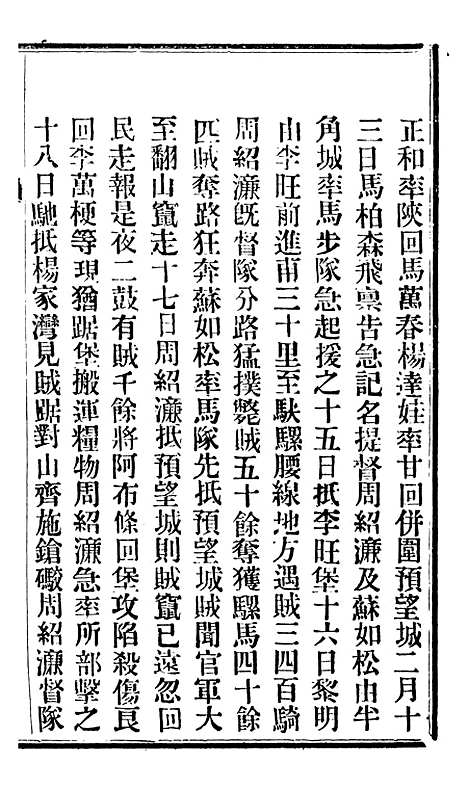 正和率陜回馬萬春楊達娃率甘回併圍預望城二月十
三日馬柏森飛稟告急記名提督周紹濂及蘇如松由半
角城率馬步隊急起援之十五日抵李旺堡十六日黎明
由李旺前進甫三十里至駃騾腰線地方遇賊三四百騎
周紹濂旣督隊分路猛撲斃賊五十餘奪獲騾馬四十餘
匹賊奪路狂奔蘇如松率馬隊先抵預望城賊聞官軍大
至翻山竄走十七日周紹濂抵預望城則賊竄已遠忽回
民走報是夜二鼓有賊千餘將阿布條回堡攻陷殺傷良
回李萬梗等現猶踞堡搬運糧物周紹濂急率所部擊之
十八日馳抵楊家灣見賊踞對山齊施鎗礮周紹濂督隊